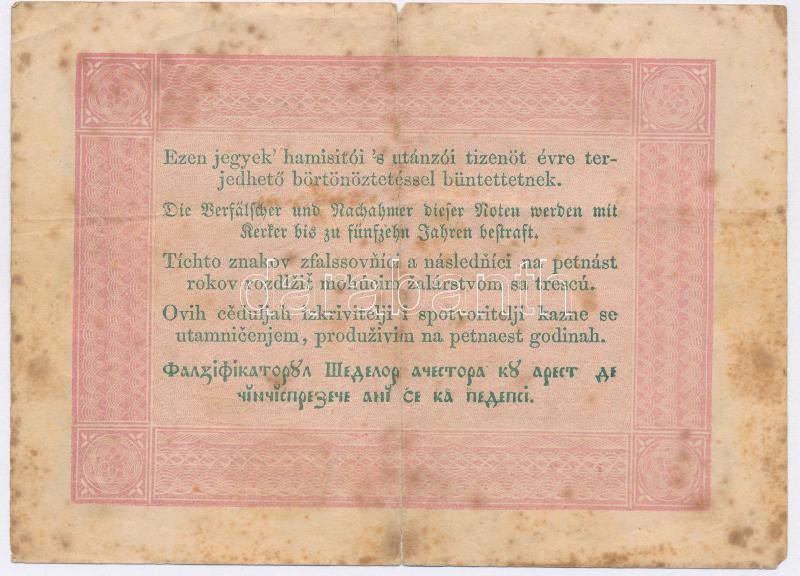 Ezen jegyek' hamisitói 's utánzói tizenöt évre ter-
jedhető börtönöztetéssel büntettetnek.
Die Verfälscher und Nachahmer dieser Noten werden mit
Kerker bis zu fünfzehn Jahren bestraft.
Tíchto znakov zfalssovňíci a následňíci na petnást
rokov rozdlžiť mohúcim žalárstvom sa trescú.
darabanti
Ovih cěduljah izkrivitelji i spotvoritelji kazne se
utamničenjem, produživim na petnaest godinah.
Фалзіфікаторꙋл Шеделор ачестора кꙋ арест де
чінчіспрезече ані се ка педепсі.